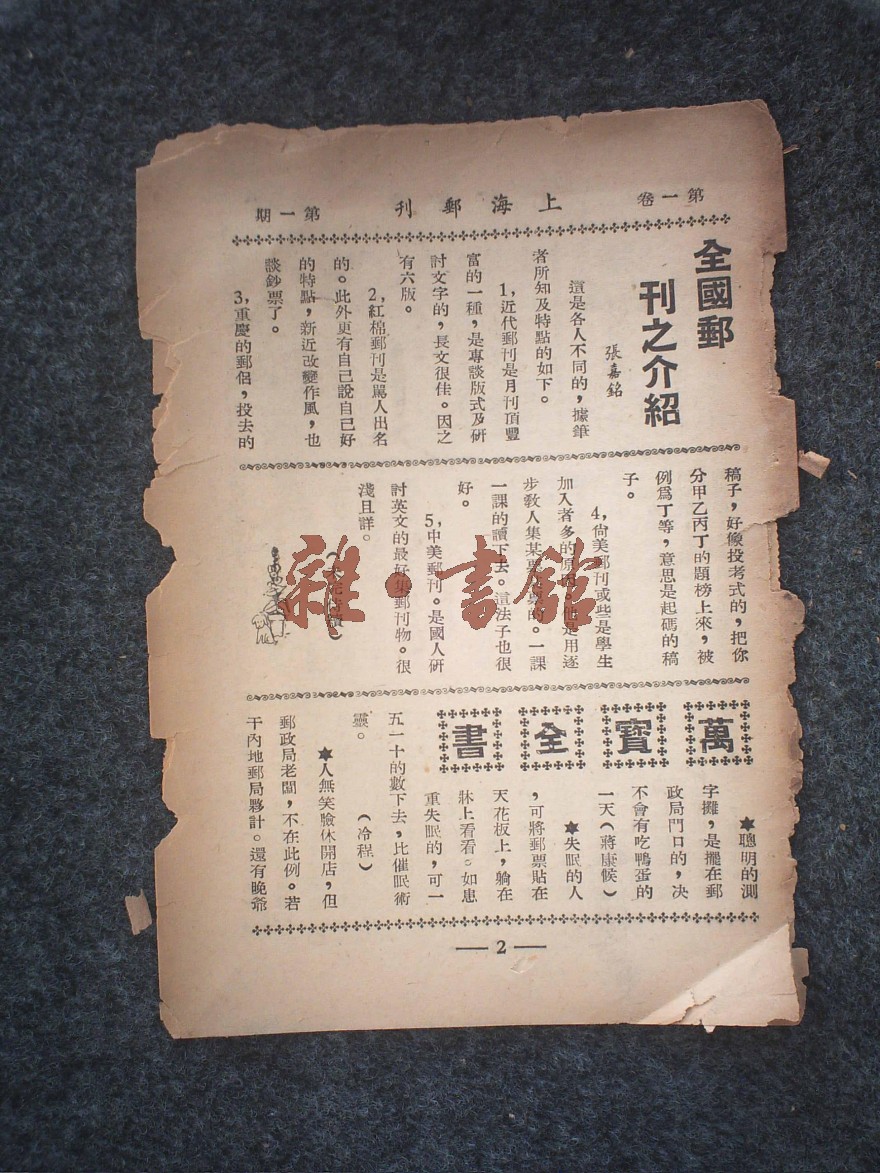 第一卷
上海郵刊
第一期
全國郵
刊之介紹
張嘉銘
這是各人不同的，據筆
者所知及特點的如下。
1，近代郵刊是月刊頂豐
富的一種，是專談版式及研
討文字的，長文很佳。因之
有六版。
2，紅棉郵刊是罵人出名
的。此外更有自己說自己好
的特點，新近改變作風，也
談鈔票了。
3，重慶的郵侶，投去的
稿子，好像投考式的，把你
分甲乙丙丁的題榜上來，被
例爲丁等，意思是起碼的稿
子。
4，尙美郵刊或些是學生
加入者多的原因，他是用逐
步敎人集某
的。一課
一課的讀下去。這法子也很
好。
5，中美郵刊。是國人研
討英文的最好集郵刊物。很
淺且詳。
萬寶全書
★聰明的測
字攤，是擺在郵
政局門口的，决
不會有吃鴨蛋的
一天（蔣康候）
★失眠的人
，可將郵票貼在
天花板上，躺在
牀上看看。如患
重失眠的，可一
五一十的數下去，比催眠術
靈。（冷程）
★人無笑臉休開店，但
郵政局老闆，不在此例。若
干內地郵局夥計。還有晚爺
—2—
雜·書館